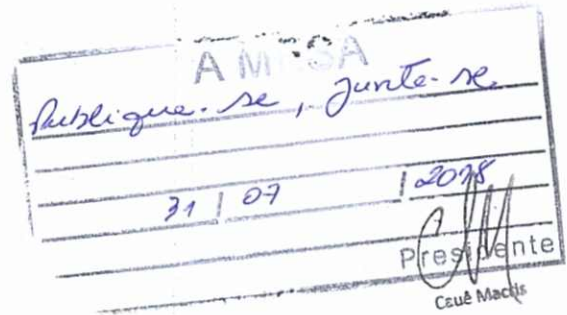 A MESA
Publique-se, Junte-se.
31 / 07 / 2018
Presidente
Cauê Macris